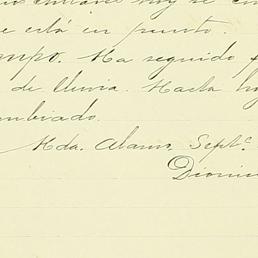 se
se está en punto.
mpo. Ha seguido
de lluvia. Hasta
mbiado.
Hda. Alamo, Sept.
Dioni